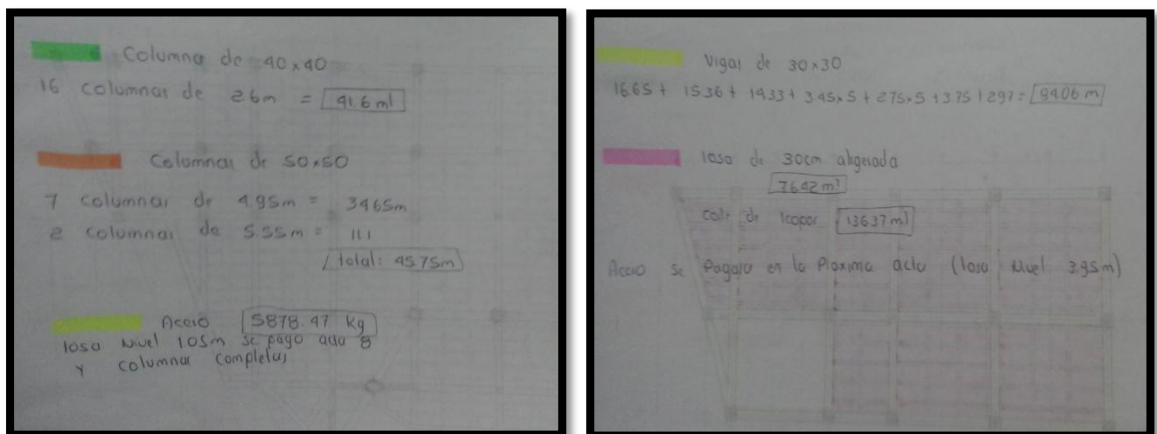 Columna de 40x40
16 columnas de 26m = 41.6 ml
Columnas de 50x50
7 columnas de 4.95m = 3465m
2 columnas de 5.55m = 111
total: 4575m
Acero 5878.47 Kg
losa Nivel 105m se pago acta 8
y columnas completas
Vigas de 30x30
16.65 + 1536 + 1433 + 345x5 + 275x5 + 375 + 297 = 8406 m
losa de 30cm aligerada
7642 m²
de Icopor 13637 ml
Acero se Pagara en la Proxima acta (losa Nivel 3.95m)